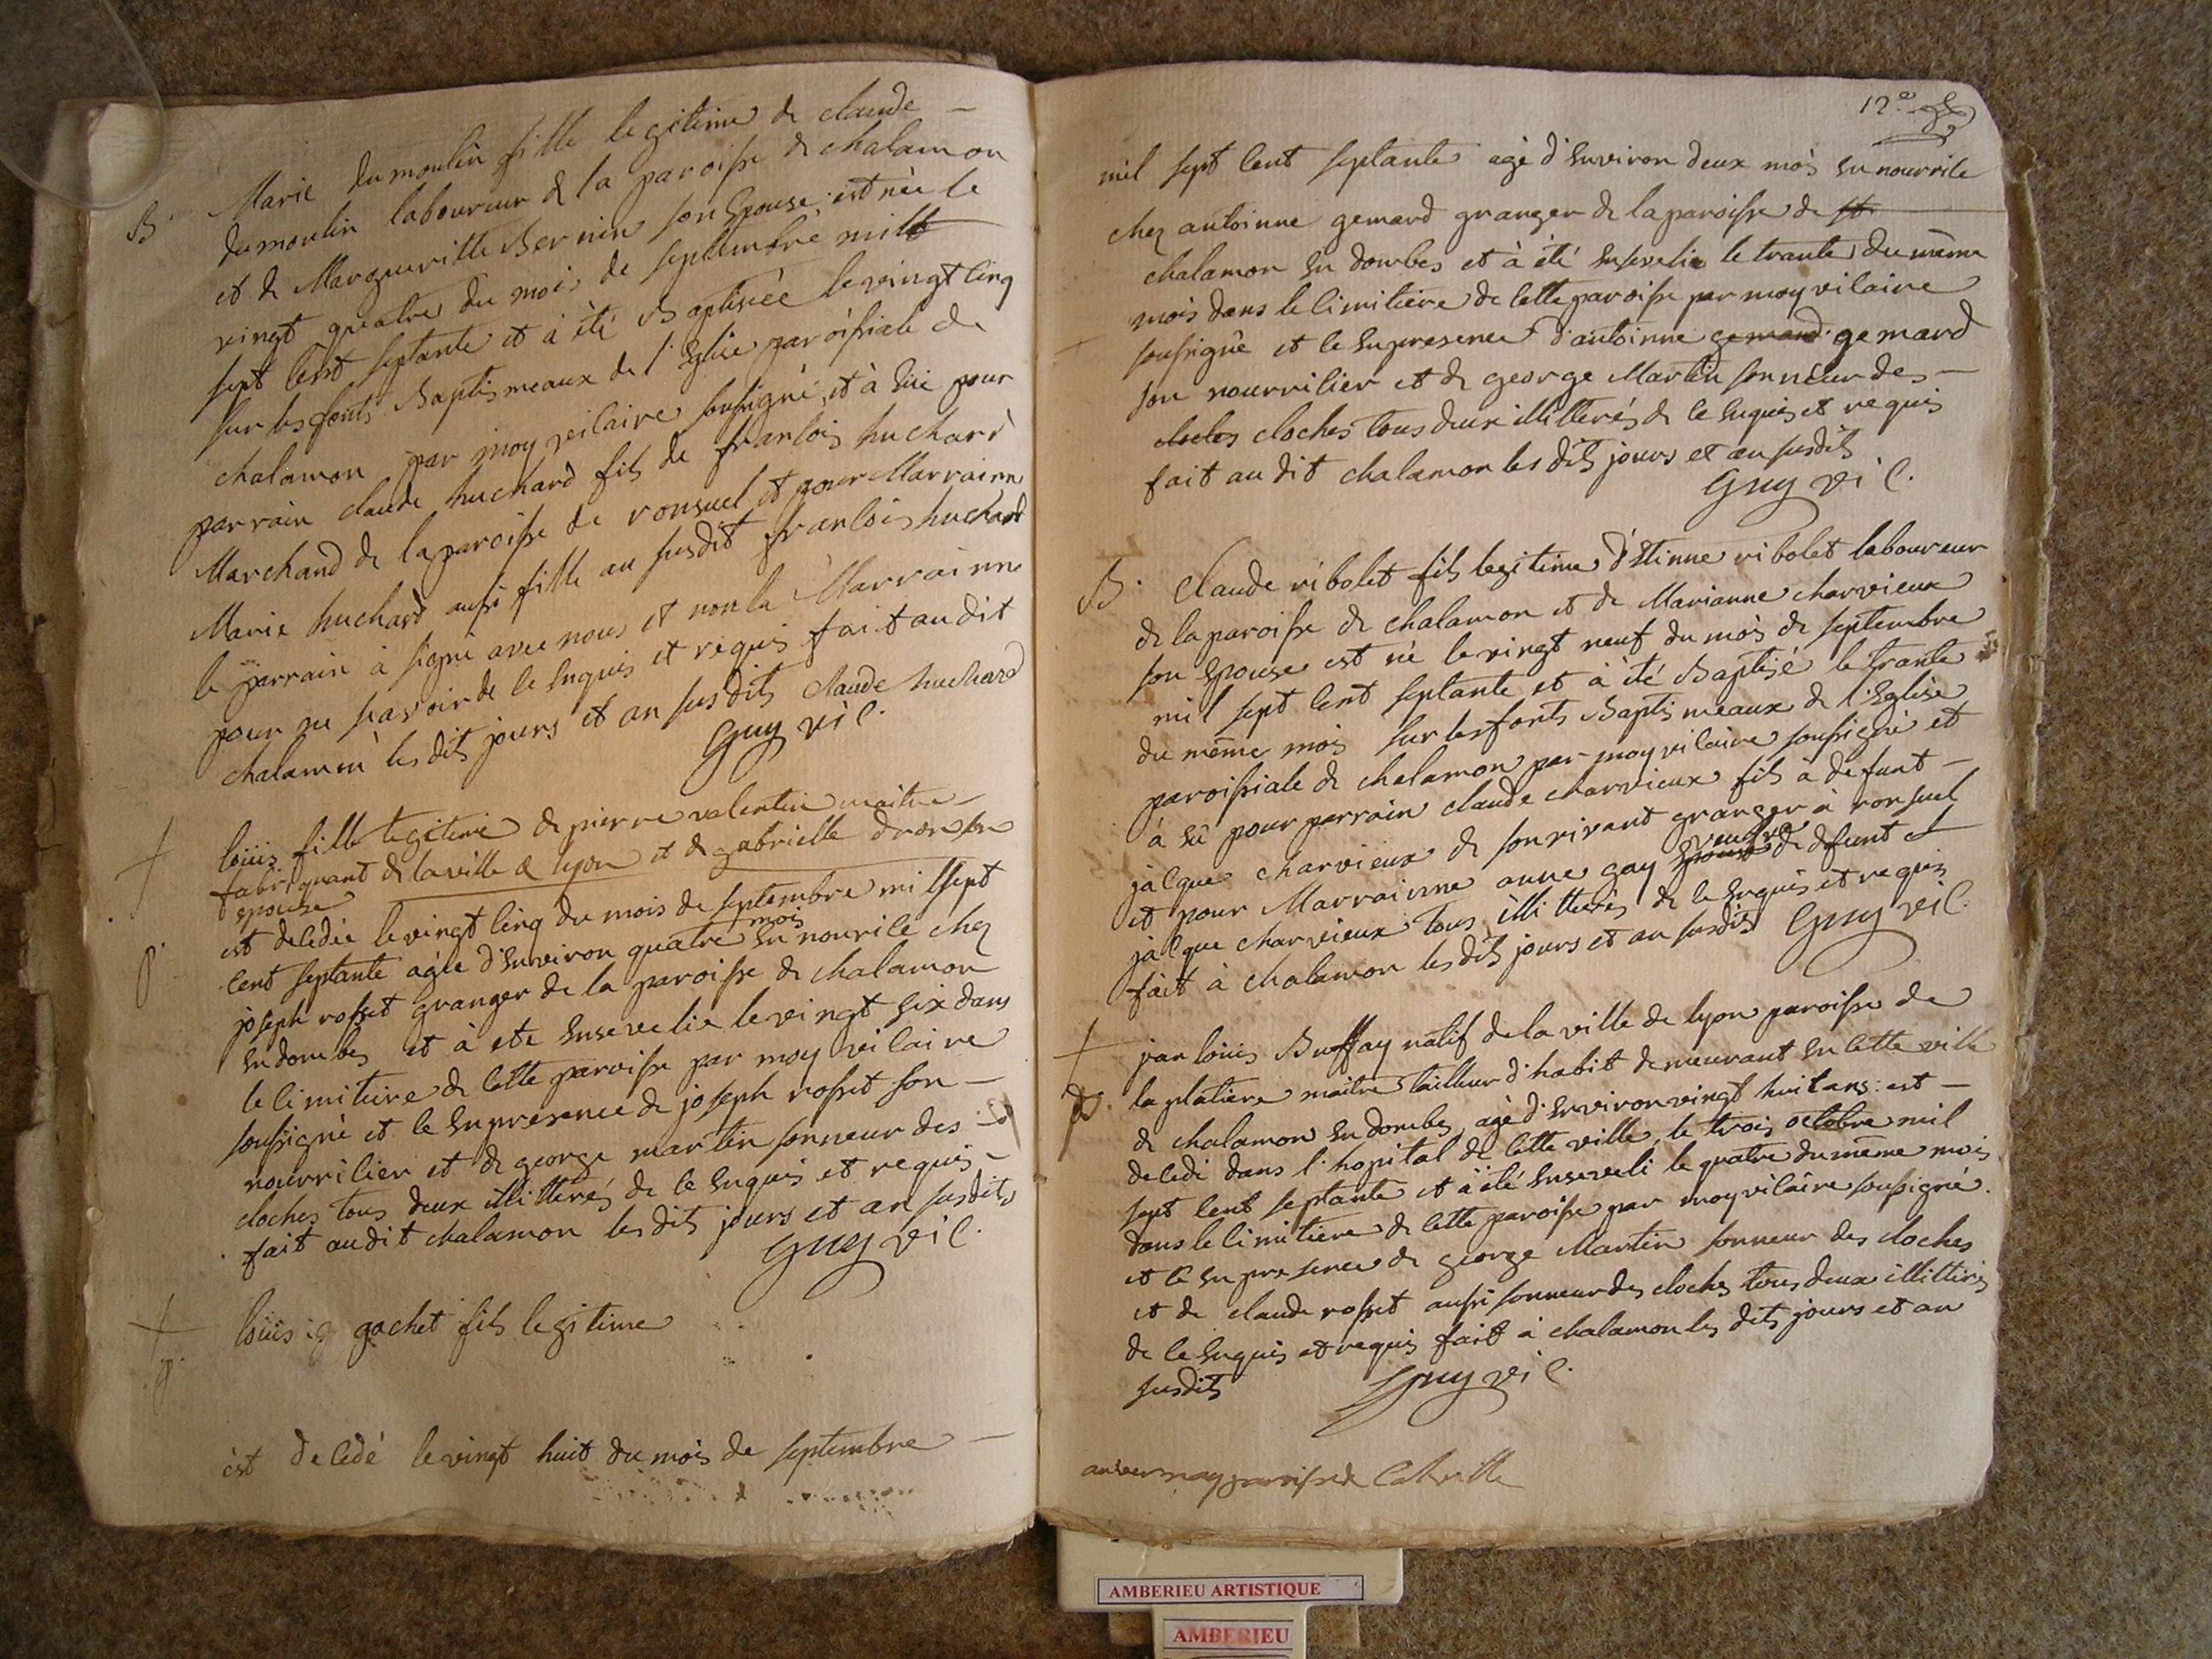 B. Marie dumoulin fille legitime de claude —
dumoulin laboureur de la paroisse de chalamon
et de Margueritte Bernin son Epouse est née le
vingt quatre du mois de septembre mill
sept cent septante et à été Baptisée le vingt cinq
sur les fonts Baptismeaux de l'Eglise paroissiale de
chalamon par moy vicaire soussigné, et à Eüe pour
parrain claude huchard fils de francois huchard
Marchand de la paroisse de ronsuel et pour Marrainne
Marie huchard aussi fille au susdit francois huchard
le parrain à signé avec nous et non la Marrainne
pour ne scavoir de ce Enquis et requis fait au dit
chalamon les dits jours et an susdits claude huchard
Guy vic.
+ loüis fille legitime de pierre valentin maitre
fabriquant de la ville de lyon et de gabrielle dron son
epouse
est decedée le vingt cinq du mois de septembre mil sept
cent septante agée d'Environ quatre mois En nourice chez
joseph rosset granger de la paroisse de chalamon
En dombes et à ete Ensevelie le vingt six dans
le cimitiere de cette paroisse par moy vicaire
soussigné et ce En presence de joseph rosset son —
nourricier et de george martin sonneur des
cloches tous deux illitterés de ce Enquis et requis —
fait audit chalamon les dits jours et an susdits
Guy vic.
+ loüis g gachet fils legitime
est decedé le vingt huit du mois de septembre —
12e
mil sept cent septante agé d'Environ deux mois En nourrice
chez antoinne gemard granger de la paroisse de st
chalamon En dombes et à été Ensevelie le trante du même
mois dans le cimitiere de cette paroisse par moy vicaire
soussigné et ce En presence d'antoinne gemard gemard
son nourricier et de george Martin sonneur des —
cloches cloches tous deux illitterés de ce Enquis et requis
fait au dit chalamon les dits jours et an susdits
Guy vic.
B. Claude ribolet fils legitime d'Etinne ribolet laboureur
de la paroisse de chalamon et de Marianne charvieux
son Epouse est né le vingt neuf du mois de septembre
mil sept cent septante et à été Baptisé le trante
du même mois sur les fonts Baptismeaux de l'Eglise
paroissiale de chalamon par moy vicaire soussigné et
à Eü pour parrain claude charvieux fils à defunt —
jacque charvieux de son vivant granger à ronsuel
et pour Marrainne anne gay Epouse veufve de defunt et
jacque charvieux tous illitterés de ce Enquis et requis
fait à chalamon les dits jours et an susdits Guy vic.
+ jean loüis Buffay natif de la ville de lyon paroisse de
la platiere maitre tailleur d'habit demeurant En cette ville
de chalamon En dombes, agé d'Environ vingt huit ans: est —
decedé dans l'hopital de cette ville, le trois octobre mil
sept cent septante et à été Enseveli le quatre du même mois
dans le cimitiere de cette paroisse par moy vicaire soussigné.
et ce En presence de george Martin sonneur des cloches
et de claude rosset aussi sonneur des cloches tous deux illitterés
de ce Enquis et requis fait à chalamon les dits jours et an
susdits Guy vic.
paroisse de
AMBERIEU ARTISTIQUE
AMBERIEU